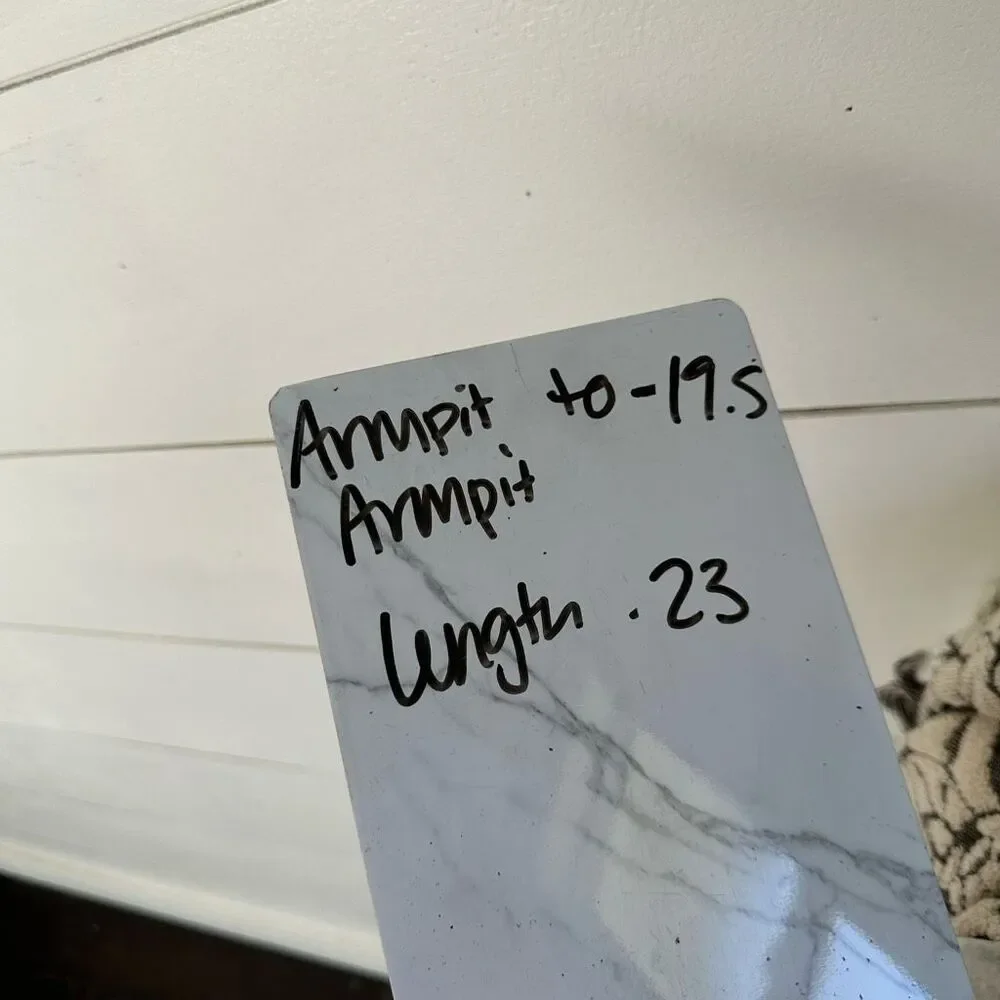 Armpit to -19.5
Armpit
length .23